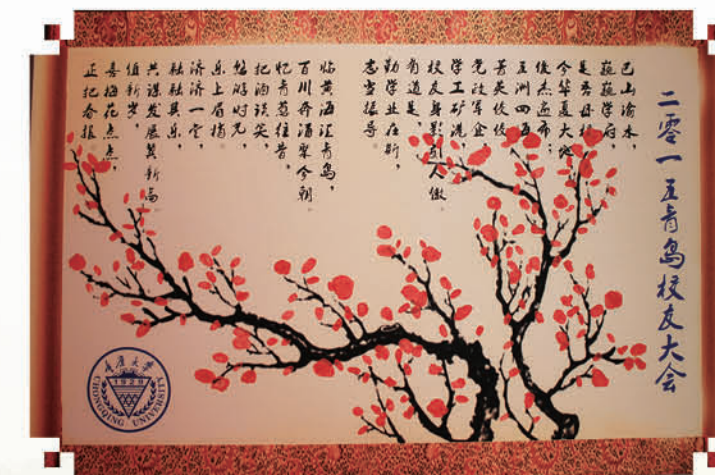 二零一五青岛校友大会
巴山渝水，
巍巍学府，
是吾母校；
今华夏大地，
俊杰遍布；
五洲四海，
菁英
党政军企，
学工矿
校友身影引人傲
有道是
勤学业在
志当振
临黄海汇青岛，
百川奔涌聚今朝
忆青葱往昔，
把酒谈笑，
悠游时光，
乐上眉梢
济济一堂，
融融其乐，
共谋发展冀新局
值新岁，
喜梅花点点，
正把春报
重庆大学
1929
CHONGQING UNIVERSITY